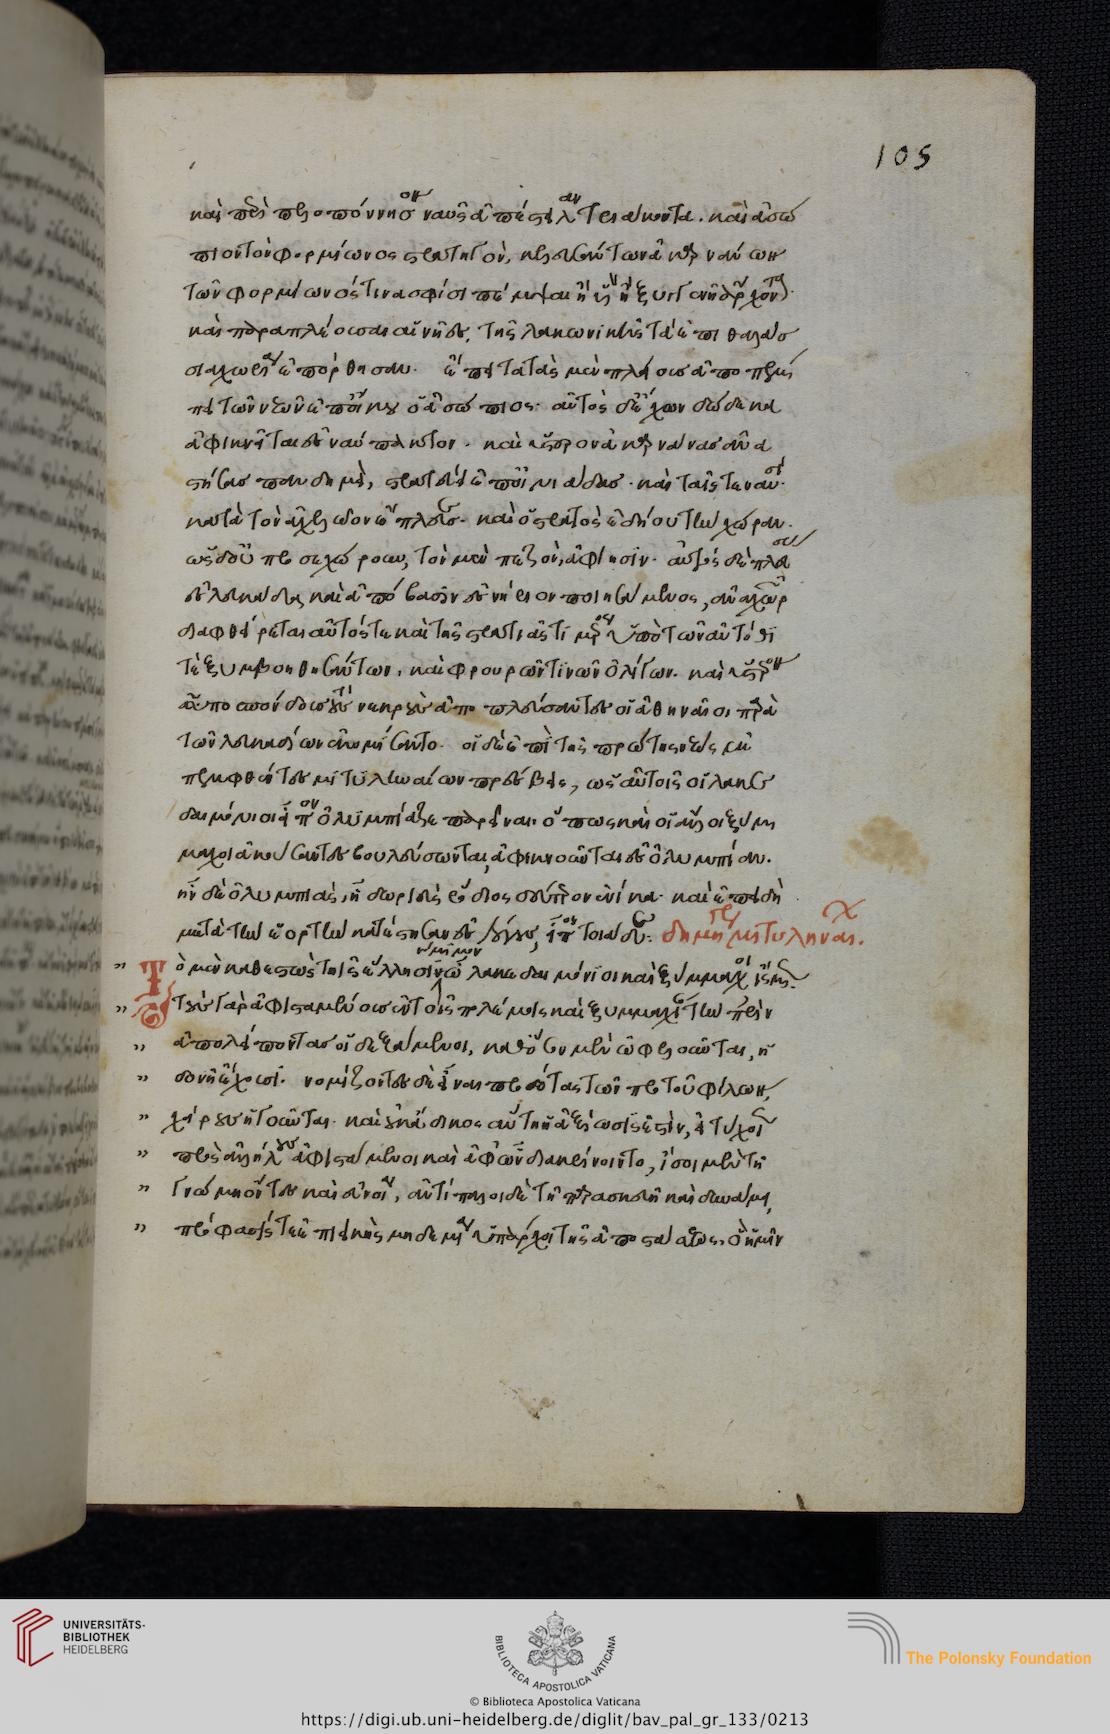 105
καὶ περὶ πελοπόννησον ναῦς ἀπέστειλαν τριάκοντα. καὶ ἀσώ
πιον τὸν φορμίωνος στρατηγόν, κελευσάντων ἀκαρνάνων
τῶν φορμίωνός τινα σφίσι πέμψαι ἢ υἱὸν ἢ ξυγγενῆ ἄρχοντα.
καὶ παραπλέουσαι αἱ νῆες, τῆς λακωνικῆς τὰ ἐπιθαλάσ
σια χωρία ἐπόρθησαν. ἔπειτα τὰς μὲν πλείους ἀποπέμ
πει τῶν νεῶν ἐπ' οἴκου ὁ ἀσώπιος. αὐτὸς δὲ ἔχων δώδεκα
ἀφικνεῖται ἐς ναύπακτον. καὶ ὕστερον ἀκαρνᾶνας ἀνα
στήσας πανδημεὶ, στρατεύει ἐπ' οἰνιάδας. καὶ ταῖς τε ναυσὶ
κατὰ τὸν ἀχελῶον ἔπλευσε. καὶ ὁ στρατὸς ἐδῄου τὴν χώραν.
ὡς δ' οὐ προσεχώρουν, τὸν μὲν πεζὸν ἀφίησιν. αὐτὸς δὲ πλεύσας
ἐς λευκάδα καὶ ἀπόβασιν ἐς νήρικον ποιησάμενος, ἀναχωρῶν
διαφθείρεται αὐτός τε καὶ τῆς στρατιᾶς τι μέρος ὑπὸ τῶν αὐτόθέν
τε ξυμβοηθησάντων, καὶ φρουρῶν τινῶν ὀλίγων. καὶ ὕστερον
ὑποσπόνδους τοὺς νεκροὺς ἀποπλεύσαντες οἱ ἀθηναῖοι παρὰ
τῶν λευκαδίων ἐκομίσαντο. οἱ δὲ ἐπὶ τῆς πρώτης νεὼς ἐκ
πεμφθέντες μυτιληναίων πρέσβεις, ὡς αὐτοῖς οἱ λακε
δαιμόνιοι εἶπον ὀλυμπίαζε παρεῖναι. ὅπως καὶ οἱ ἄλλοι ξύμ
μαχοι ἀκούσαντες βουλεύσωνται, ἀφικνοῦνται ἐς ὀλυμπίαν.
ἦν δὲ ὀλυμπιὰς, ᾗ δωριεὺς ῥόδιος δεύτερον ἐνίκα. καὶ ἐπειδὴ
μετὰ τὴν ἑορτὴν κατέστησαν ἐς λόγους, εἶπον τοιάδε:
Τὸ μὲν καθεστὼς τοῖς ἕλλησι νόμιμον ὦ λακεδαιμόνιοι καὶ ξύμμαχοι ἴσμεν.
τοὺς γὰρ ἀφισταμένους ἐν τοῖς πολέμοις καὶ ξυμμαχίαν τὴν πρὶν
ἀπολείποντας οἱ δεξάμενοι, καθ' ὅσον μὲν ὠφελοῦνται, ἐν
ἡδονῇ ἔχουσι. νομίζοντες δὲ εἶναι προδότας τῶν πρὸ τοῦ φίλων,
χείρους ἡγοῦνται. καὶ οὐκ ἄδικος αὕτη ἡ ἀξίωσίς ἐστιν, εἰ τύχοιεν
πρὸς ἀλλήλους οἵ τε ἀφιστάμενοι καὶ ἀφ' ὧν διακρίνοιντο, ἴσοι μὲν τῇ
γνώμῃ ὄντες καὶ εὐνοίᾳ, ἀντίπαλοι δὲ τῇ παρασκευῇ καὶ δυνάμει,
πρόφασίς τε ἐπιεικὴς μηδεμία ὑπάρχοι τῆς ἀποστάσεως. ὃ ἡμῖν
UNIVERSITÄTS-
BIBLIOTHEK
HEIDELBERG
BIBLIOTECA APOSTOLICA VATICANA
The Polonsky Foundation
© Biblioteca Apostolica Vaticana
https://digi.ub.uni-heidelberg.de/diglit/bav_pal_gr_133/0213